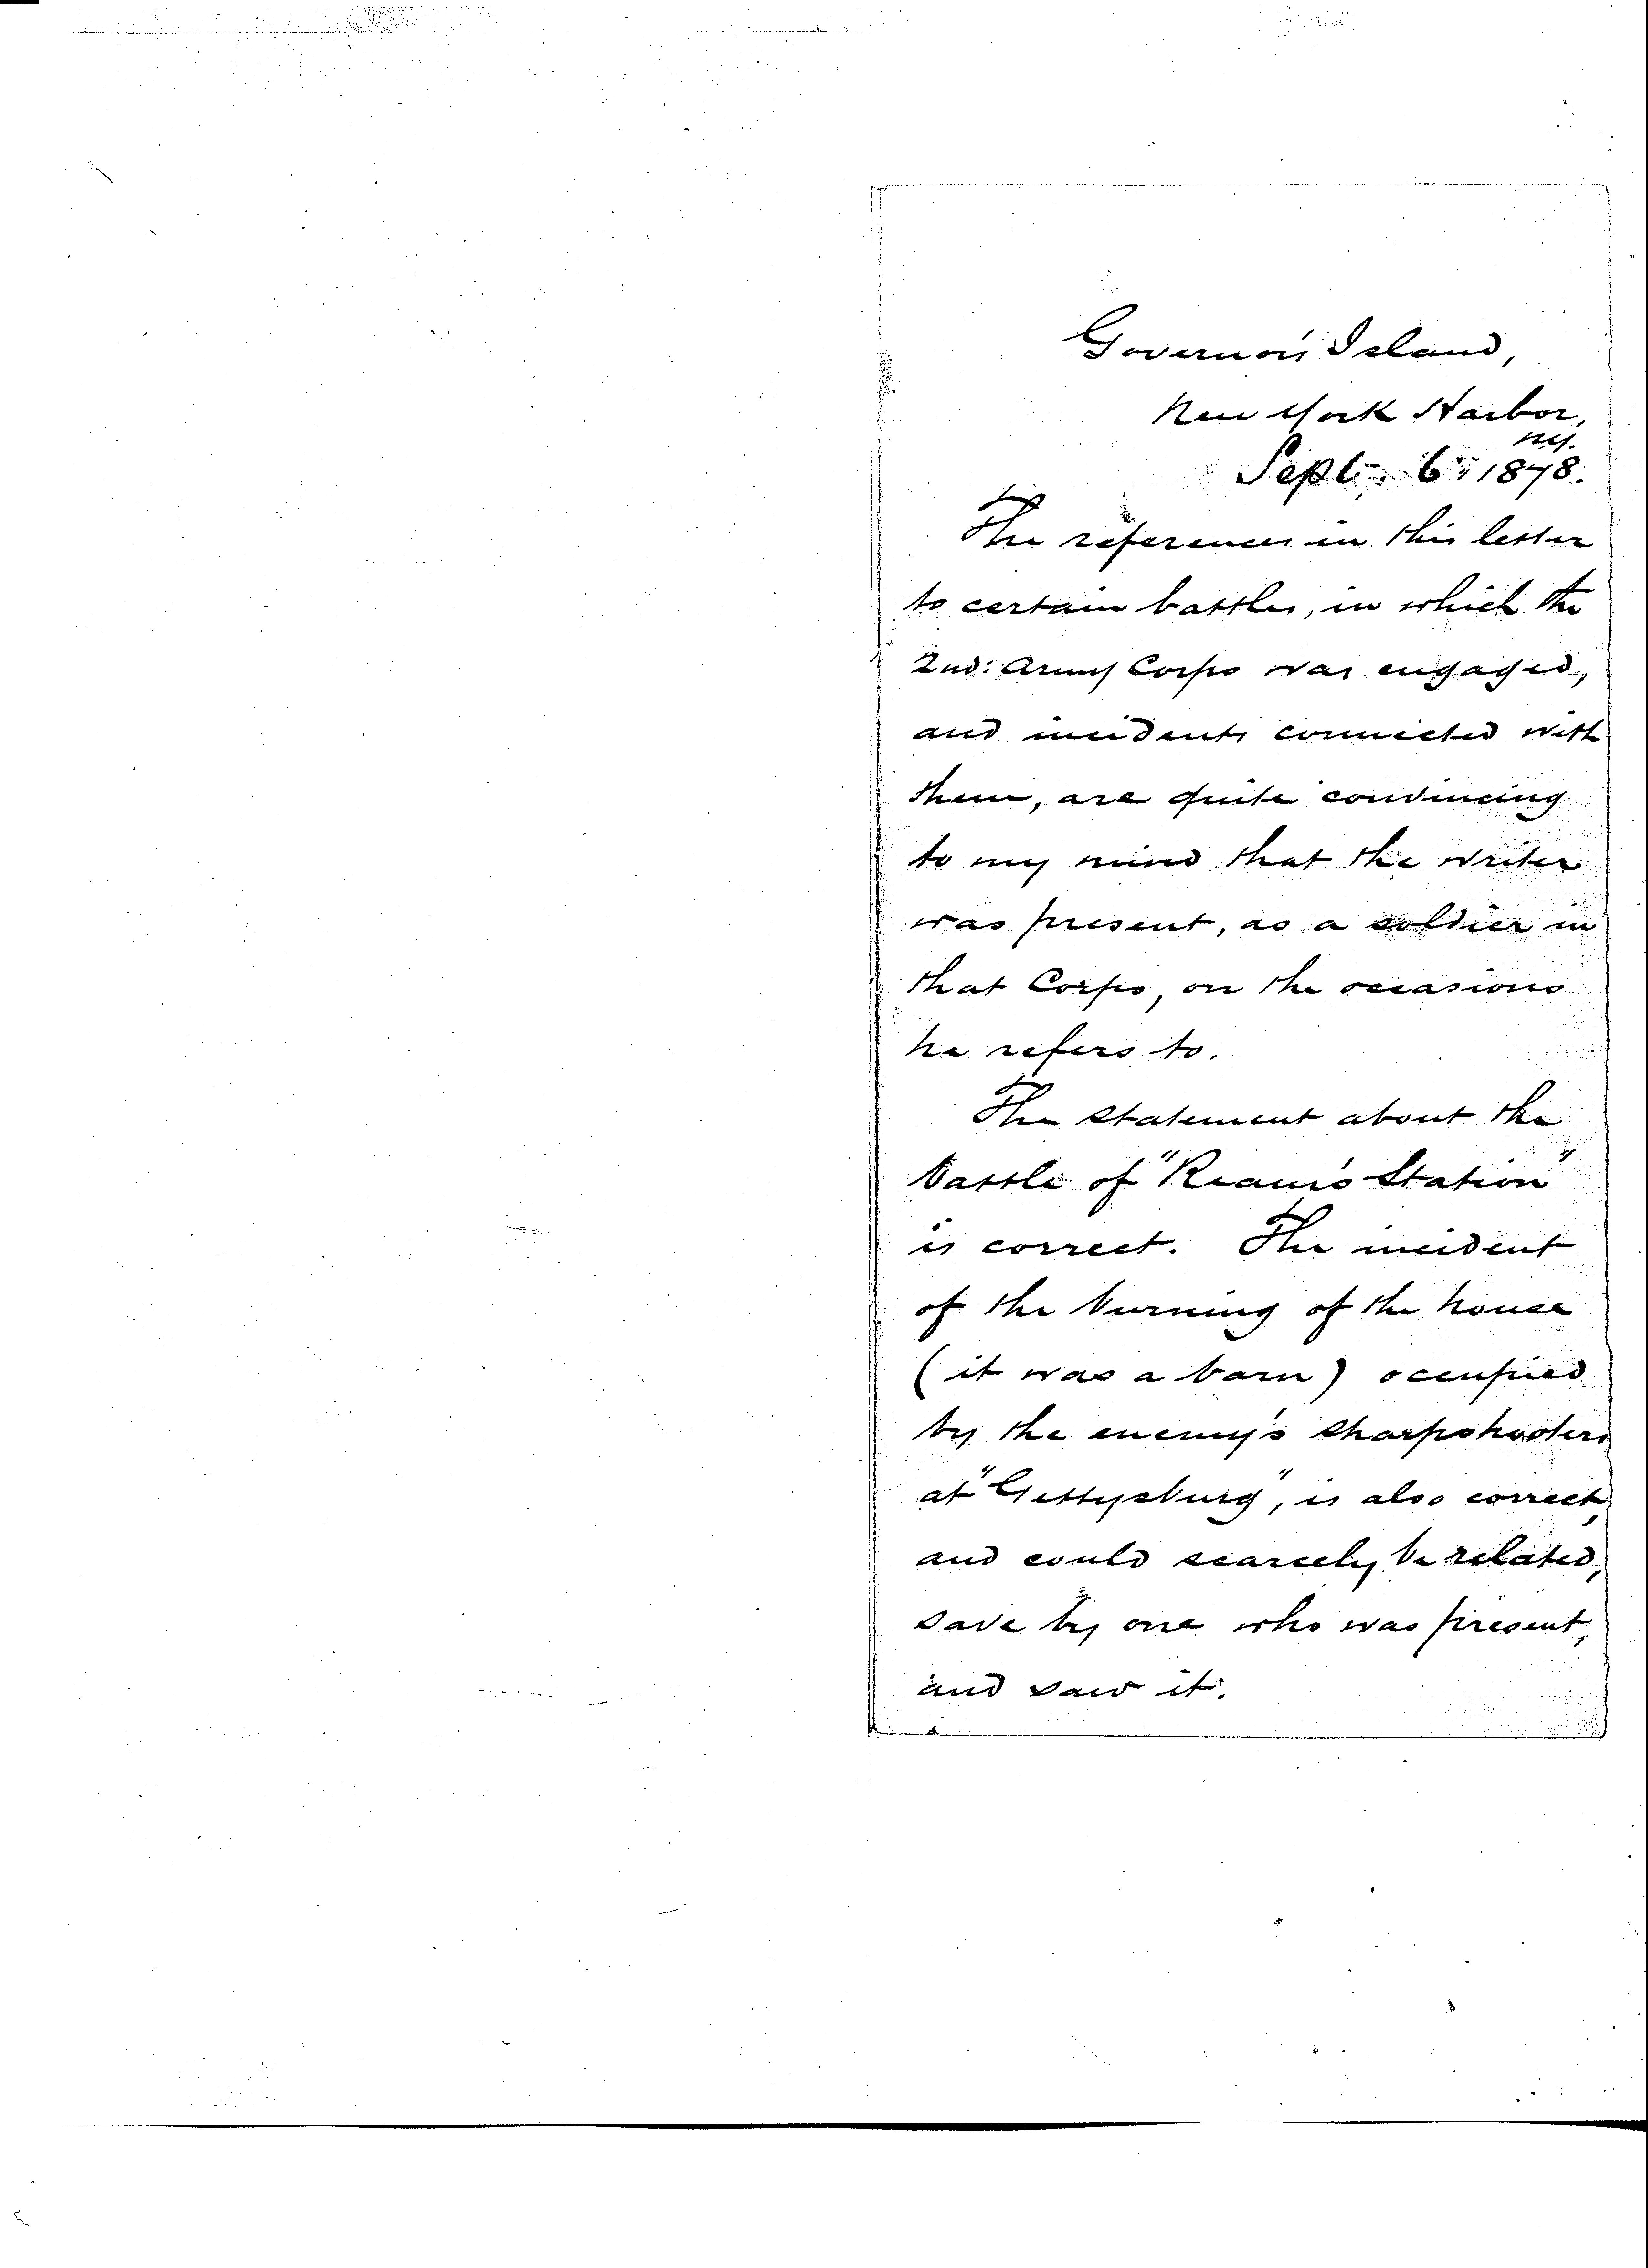 Governor's Island,
New York Harbor,
N.Y.
Sept. 6: 1878.
The references in this letter
to certain battles, in which the
2nd: Army Corps was engaged,
and incidents connected with
them, are quite convincing
to my mind that the writer
was present, as a soldier in
that Corps, on the occasions
he refers to.
The statement about the
battle of "Ream's Station"
is correct. The incident
of the burning of the house
(it was a barn) occupied
by the enemy's sharpshooters
at "Gettysburg", is also correct,
and could scarcely be related,
save by one who was present,
and saw it.